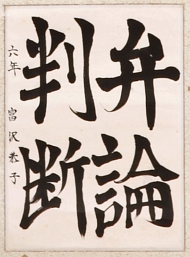 弁論
判断
六年 宮沢恭子